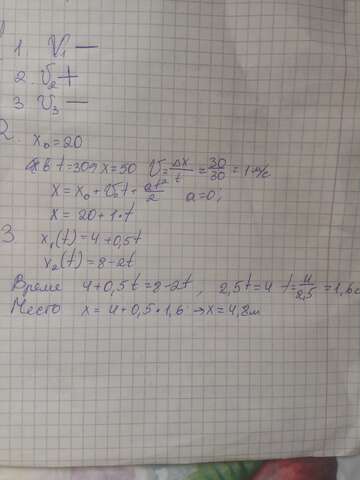 1. V₁ —
2. V₂ +
3. V₃ —
2.
x₀ = 20
в t = 30 x = 50 V = Δx/t = 30/30 = 1 м/с
x = x₀ + V₀t + at²/2 a = 0;
x = 20 + 1·t
3. x₁(t) = 4 + 0,5t
x₂(t) = 8 - 2t
Время 4 + 0,5t = 8 - 2t, 2,5t = 4 t = 4/2,5 = 1,6с
Место x = 4 + 0,5·1,6 → x = 4,8м